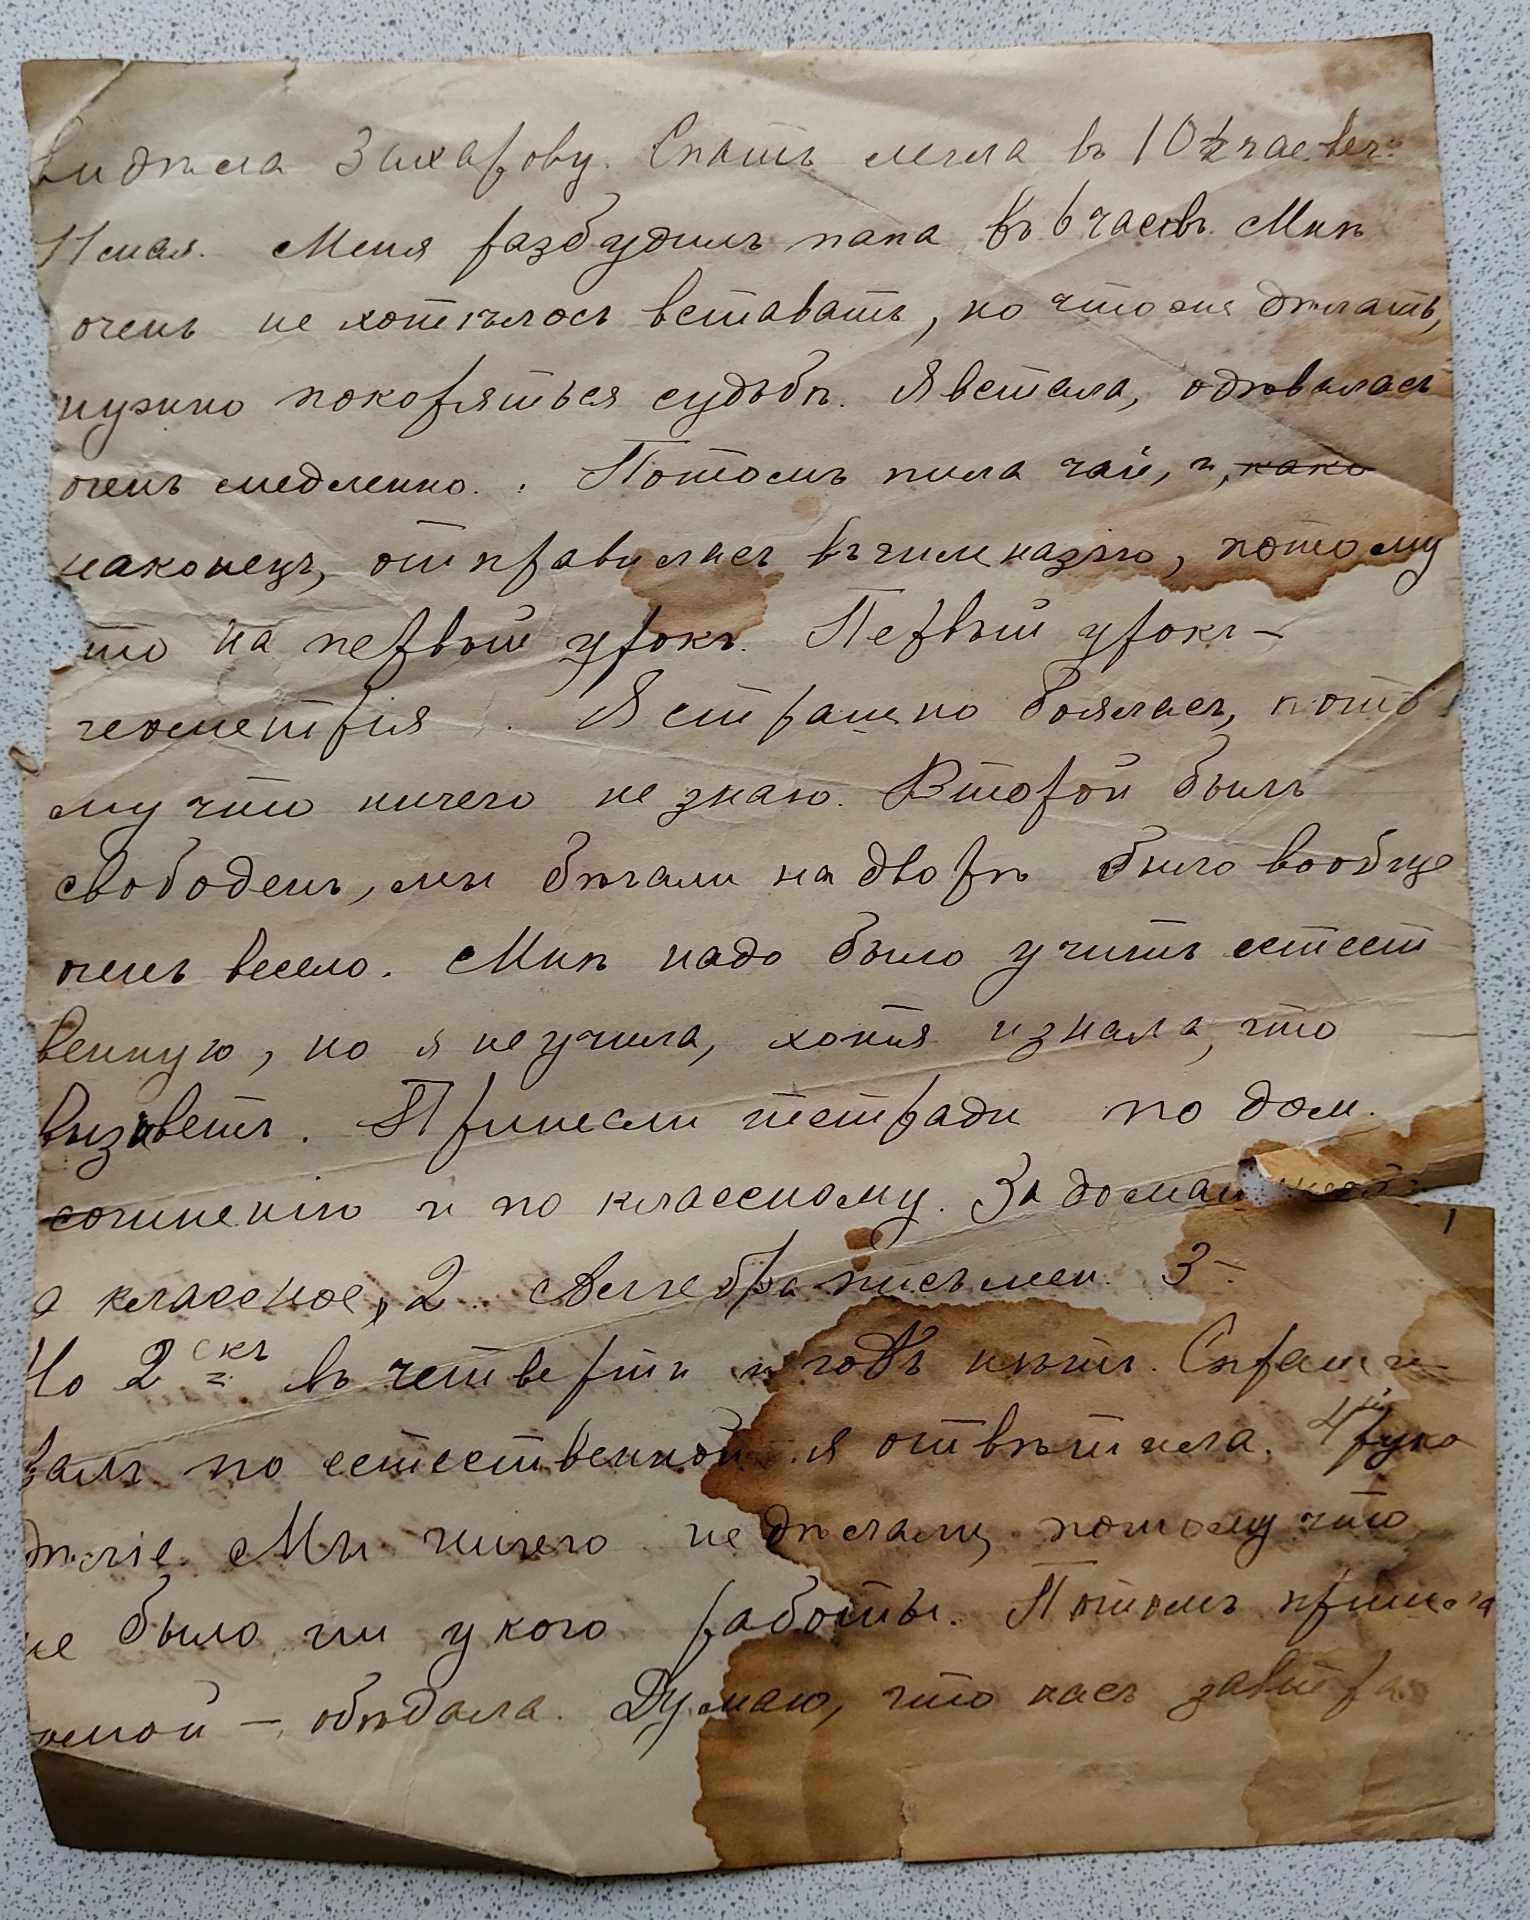 видѣла Захарову. Спать легла въ 10½ час. веч.
11 мая. Меня разбудилъ папа въ 6 часовъ. Мнѣ
очень не хотѣлось вставать, но что же дѣлать,
нужно покоряться судьбѣ. Я встала, одѣвалась
очень медленно. Потомъ пила чай, и, како
наконецъ, отправилась въ гимназію, потому
что на первый урокъ. Первый урокъ —
геометрія. Я страшно боялась, пото
му что ничего не знаю. Второй былъ
свободенъ, мы бѣгали на дворѣ было вообще
очень весело. Мнѣ надо было учить естест
венную, но я не учила, хотя и знала, что
вызоветъ. Принесли тетради по дом.
сочиненію и по классному. За домашнее
а классное, 2. Алгебра письмен. 3-.
Но 2 въ четверти и годѣ нѣтъ. Спраши
валъ по естественной я отвѣтила. 4й руко
дѣліе. Мы ничего не дѣлали, потому что
не было ни у кого работы. Потомъ пришла
домой — обѣдала. Думаю, что насъ завтра